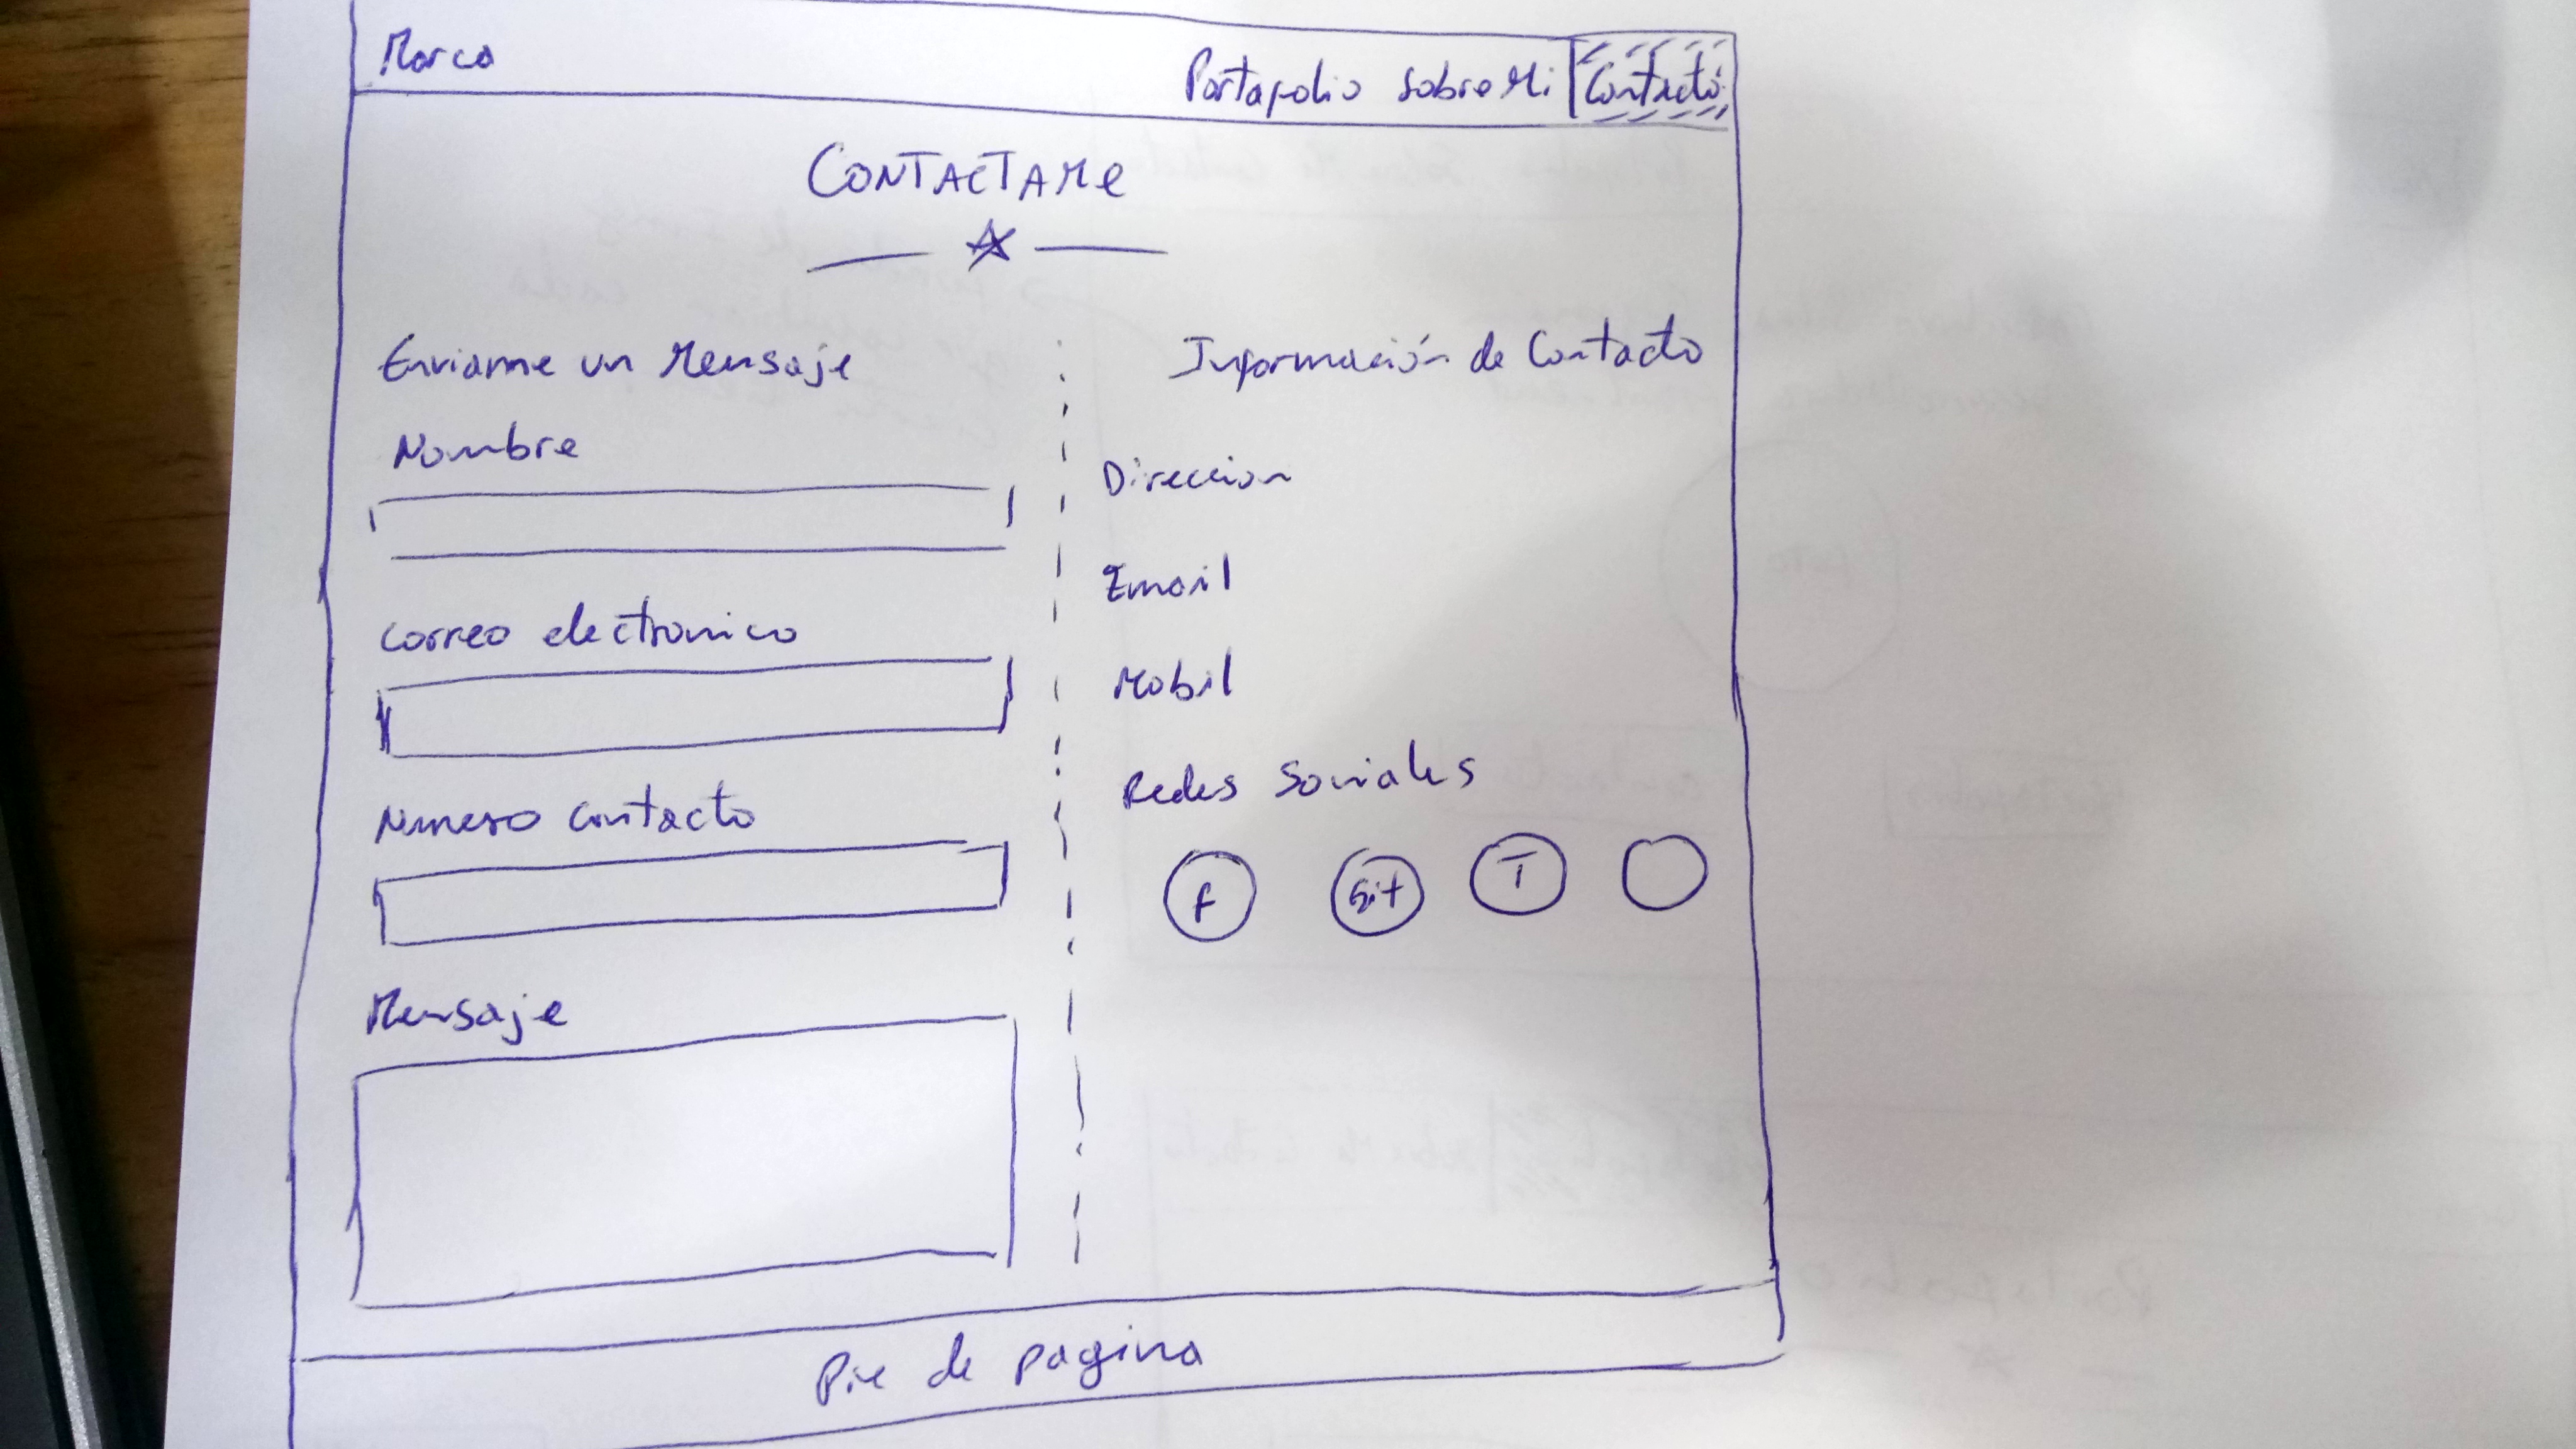 Marca Portafolio sobre Mi Contacto
CONTACTAME
Enviarme un Mensaje
Nombre
Correo electronico
Numero contacto
Mensaje
Información de Contacto
Direccion
Email
Mobil
Redes Sociales
f Git T
Pie de pagina